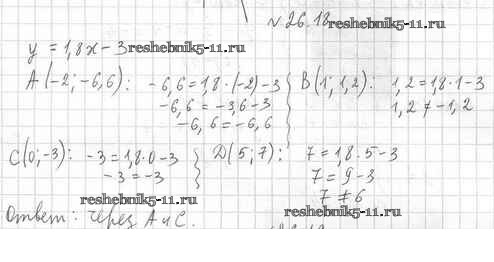 № 26.18
reshebnik5-11.ru
y = 1,8x - 3 reshebnik5-11.ru
A(-2; -6,6): -6,6 = 1,8·(-2) - 3
-6,6 = -3,6 - 3
-6,6 = -6,6
B(1; 1,2): 1,2 = 1,8·1 - 3
1,2 ≠ -1,2
C(0; -3): -3 = 1,8·0 - 3
-3 = -3
D(5; 7): 7 = 1,8·5 - 3
7 = 9 - 3
7 ≠ 6
reshebnik5-11.ru
reshebnik5-11.ru
Ответ: через A и C.